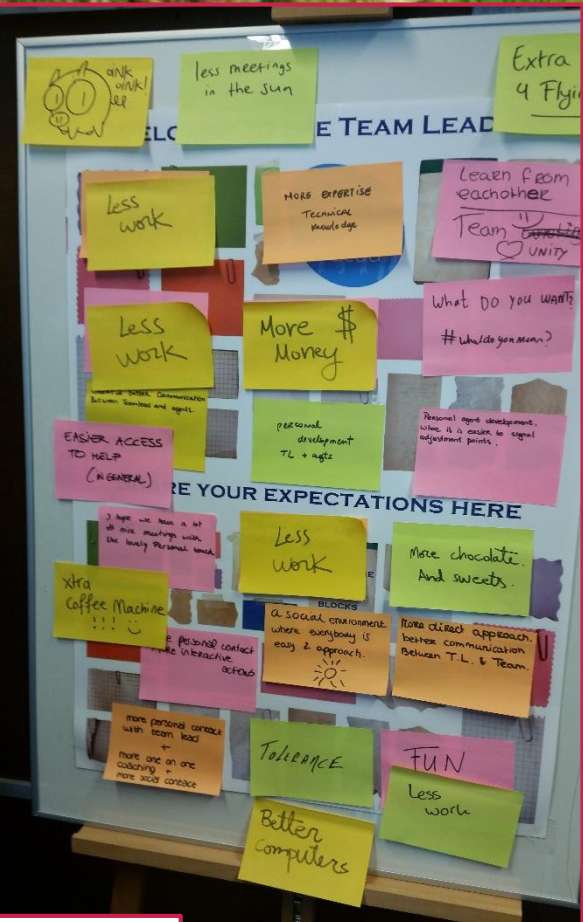 OINK
OINK!
less meetings
in the sun
Extra
4 Flyi
E TEAM LEAD
Less
work
MORE EXPERTISE
TECHNICAL
Knowledge
Learn from
eachother
Team
UNITY
Less
work
More $
Money
What DO YOU WANT?
#whatdoyoumean?
better Communication
Between Teamlead and agents.
personal
development
TL + agts
Personal agent development.
where it is easier to signal
adjustment points.
EASIER ACCESS
TO HELP
(IN GENERAL)
RE YOUR EXPECTATIONS HERE
I hope we have a lot
of nice meetings with
the lovely Personal touch
Less
work
More chocolate.
And sweets.
Xtra
Coffee Machine
!!!
BLOCKS
a social environment
where everybody is
easy 2 approach.
More direct approach.
better communication
Between T.L. & Team.
personal contact
interactive
actions
more personal contact
with team lead
+
more one on one
coaching +
more social contact
TOLERANCE
FUN
Less
work
Better
computers